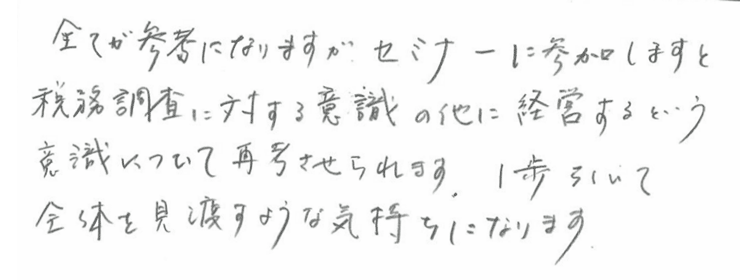 全てが参考になりますが セミナーに参加しますと
税務調査に対する意識の他に経営するという
意識について再考させられます。1歩引いて
全体を見渡すような気持ちになります